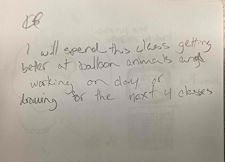 I will spend this class getting
better at balloon animals and
working on day or
drawing for the next 4 classes